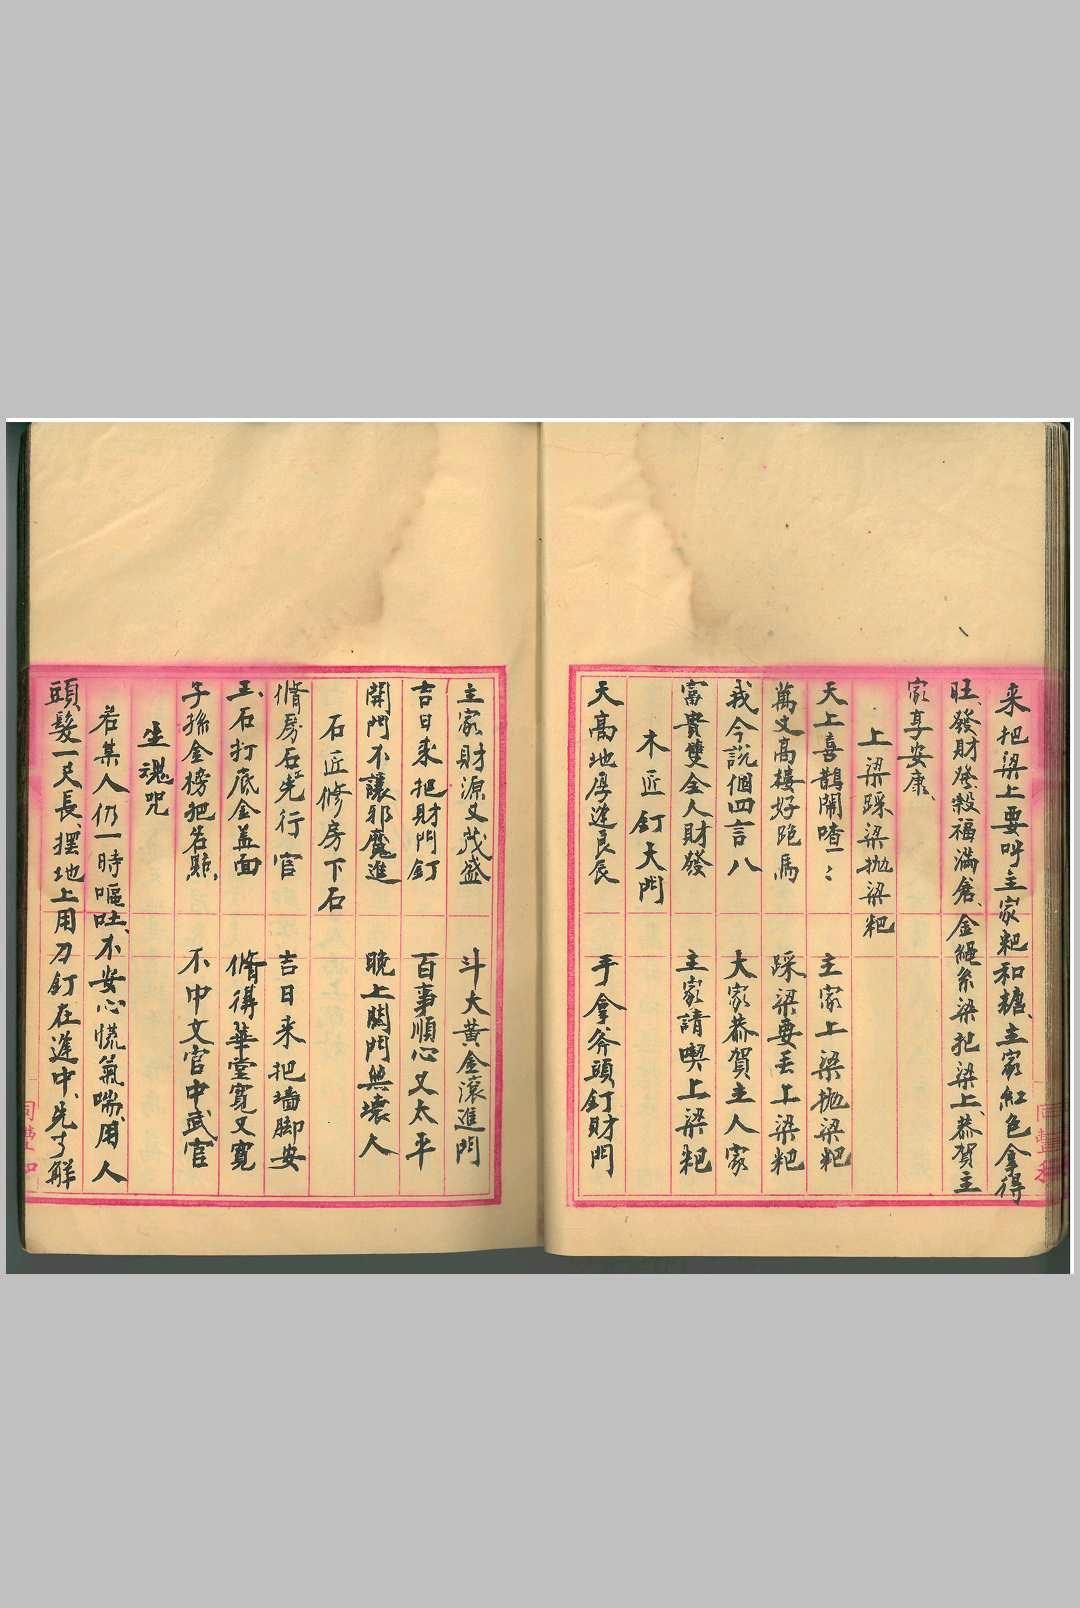 来把梁上要呼主家粑和糖、主家紅色拿得
旺、發財發穀福滿倉、金繩系梁把梁上、恭賀主
家享安康、
上梁踩梁抛梁粑
天上喜鵲鬧喳〻 主家上梁抛梁粑
萬丈高樓好跑馬 踩梁要丢上梁粑
我今說個四言八 大家恭賀主人家
富貴雙全人財發 主家請喫上梁粑
木匠釘大門
天高地厚逢良辰 手拿斧頭釘財門
主家財源又茂盛 斗大黄金滾進門
吉日来把財門釘 百事順心又太平
開門不讓邪魔進 晚上関門無壊人
石匠修房下石
脩房石匠先行官 吉日来把墙脚安
玉石打底金盖面 脩得華堂寬又寬
子孫金榜把名點、 不中文官中武官
魂咒
若某人仍一時嘔吐、不安心慌氣喘、用人
頭髮一尺長、擺地上用刀釘在逢中、先了解